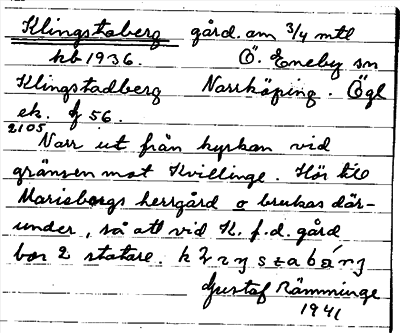 Klingstaberg gård. om 3/4 mtl
kb 1936. Ö. Eneby sn
Klingstadberg Norrköping. Ögl
ek. f 56.
2105
Norr ut från kyrkan vid
gränsen mot Kvillinge. Hör till
Marieborgs herrgård o brukas där-
under, så att vid K. f.d. gård
bor 2 statare.
Gustaf Rämminge
1941